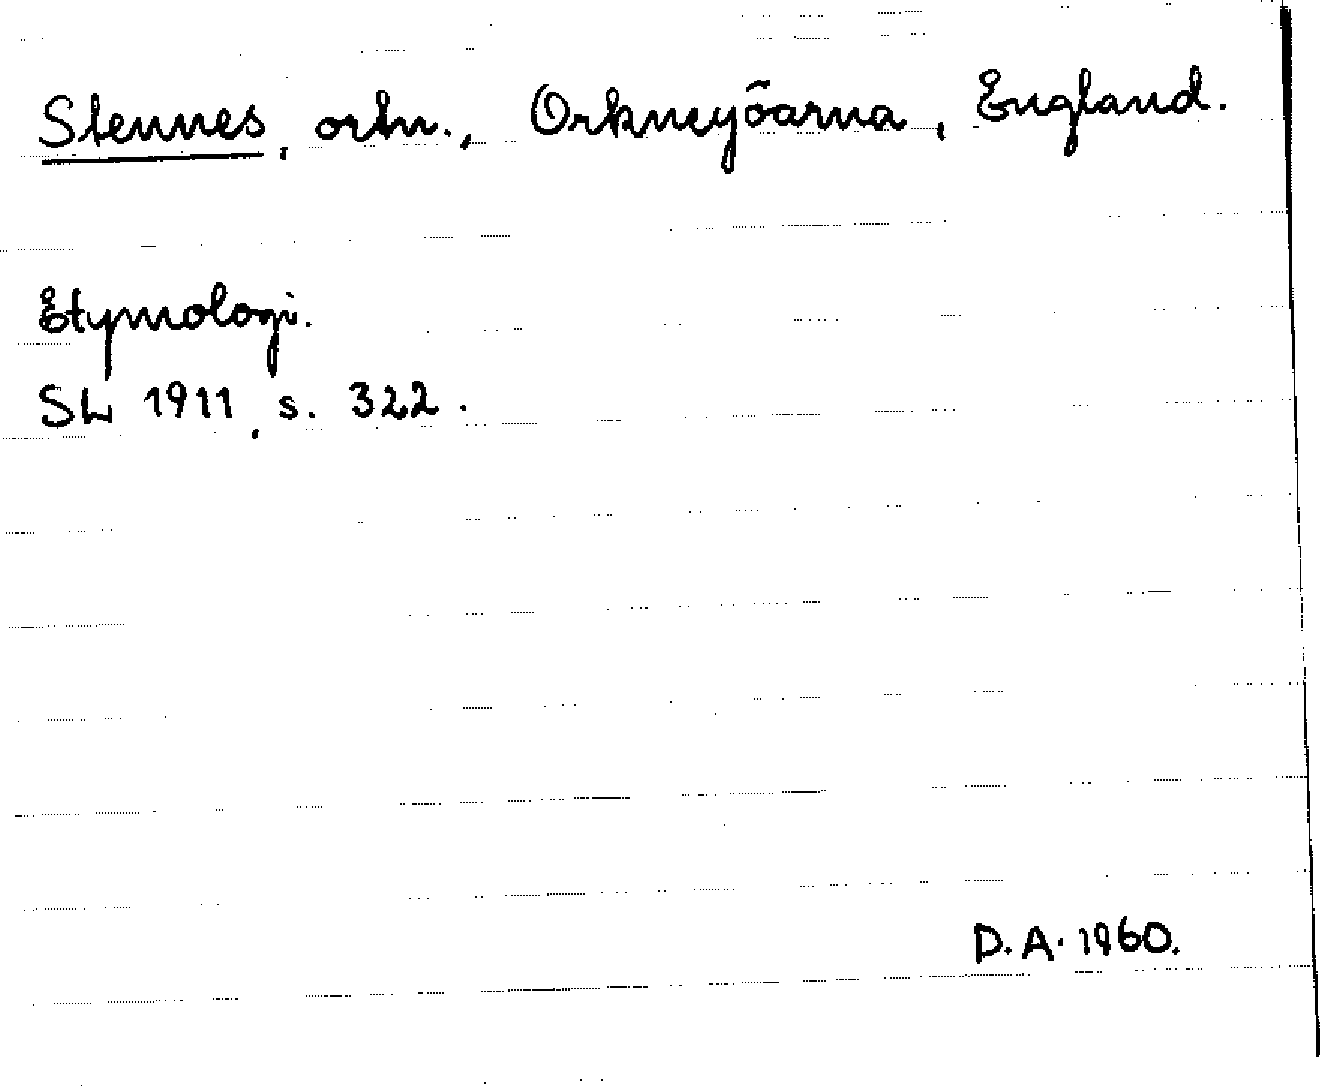 Stennes, ortn., Orkneyöarna, England.
Etymologi.
SL 1911, s. 322.
D.A. 1960.